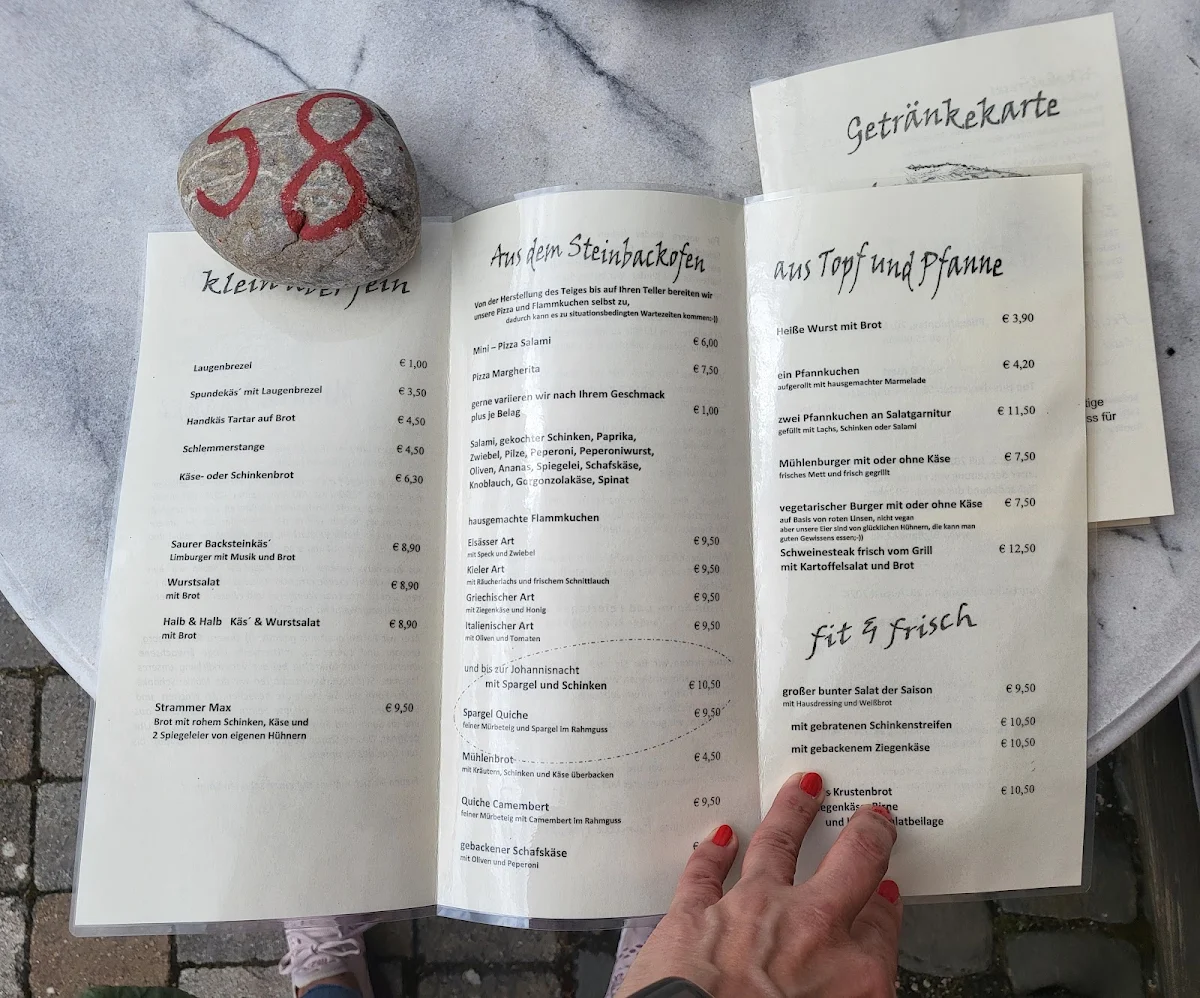 58
Getränkekarte
klein aber fein
Laugenbrezel € 1,00
Spundekäs´ mit Laugenbrezel € 3,50
Handkäs Tartar auf Brot € 4,50
Schlemmerstange € 4,50
Käse- oder Schinkenbrot € 6,30
Saurer Backsteinkäs´ € 8,90
Limburger mit Musik und Brot
Wurstsalat € 8,90
mit Brot
Halb & Halb Käs´ & Wurstsalat € 8,90
mit Brot
Strammer Max € 9,50
Brot mit rohem Schinken, Käse und
2 Spiegeleier von eigenen Hühnern
Aus dem Steinbackofen
Von der Herstellung des Teiges bis auf Ihren Teller bereiten wir
unsere Pizza und Flammkuchen selbst zu,
dadurch kann es zu situationsbedingten Wartezeiten kommen;-))
Mini – Pizza Salami € 6,00
Pizza Margherita € 7,50
gerne variieren wir nach Ihrem Geschmack
plus je Belag € 1,00
Salami, gekochter Schinken, Paprika,
Zwiebel, Pilze, Peperoni, Peperoniwurst,
Oliven, Ananas, Spiegelei, Schafskäse,
Knoblauch, Gorgonzolakäse, Spinat
hausgemachte Flammkuchen
Elsässer Art € 9,50
mit Speck und Zwiebel
Kieler Art € 9,50
mit Räucherlachs und frischem Schnittlauch
Griechischer Art € 9,50
mit Ziegenkäse und Honig
Italienischer Art € 9,50
mit Oliven und Tomaten
und bis zur Johannisnacht
mit Spargel und Schinken € 10,50
Spargel Quiche € 9,50
feiner Mürbeteig und Spargel im Rahmguss
Mühlenbrot € 4,50
mit Kräutern, Schinken und Käse überbacken
Quiche Camembert € 9,50
feiner Mürbeteig mit Camembert im Rahmguss
gebackener Schafskäse €
mit Oliven und Peperoni
aus Topf und Pfanne
Heiße Wurst mit Brot € 3,90
ein Pfannkuchen € 4,20
aufgerollt mit hausgemachter Marmelade
zwei Pfannkuchen an Salatgarnitur € 11,50
gefüllt mit Lachs, Schinken oder Salami
Mühlenburger mit oder ohne Käse € 7,50
frisches Mett und frisch gegrillt
vegetarischer Burger mit oder ohne Käse € 7,50
auf Basis von roten Linsen, nicht vegan
aber unsere Eier sind von glücklichen Hühnern, die kann man
guten Gewissens essen;-))
Schweinesteak frisch vom Grill € 12,50
mit Kartoffelsalat und Brot
fit & frisch
großer bunter Salat der Saison € 9,50
mit Hausdressing und Weißbrot
mit gebratenen Schinkenstreifen € 10,50
mit gebackenem Ziegenkäse € 10,50
s Krustenbrot € 10,50
Birne
und
tige
ss für